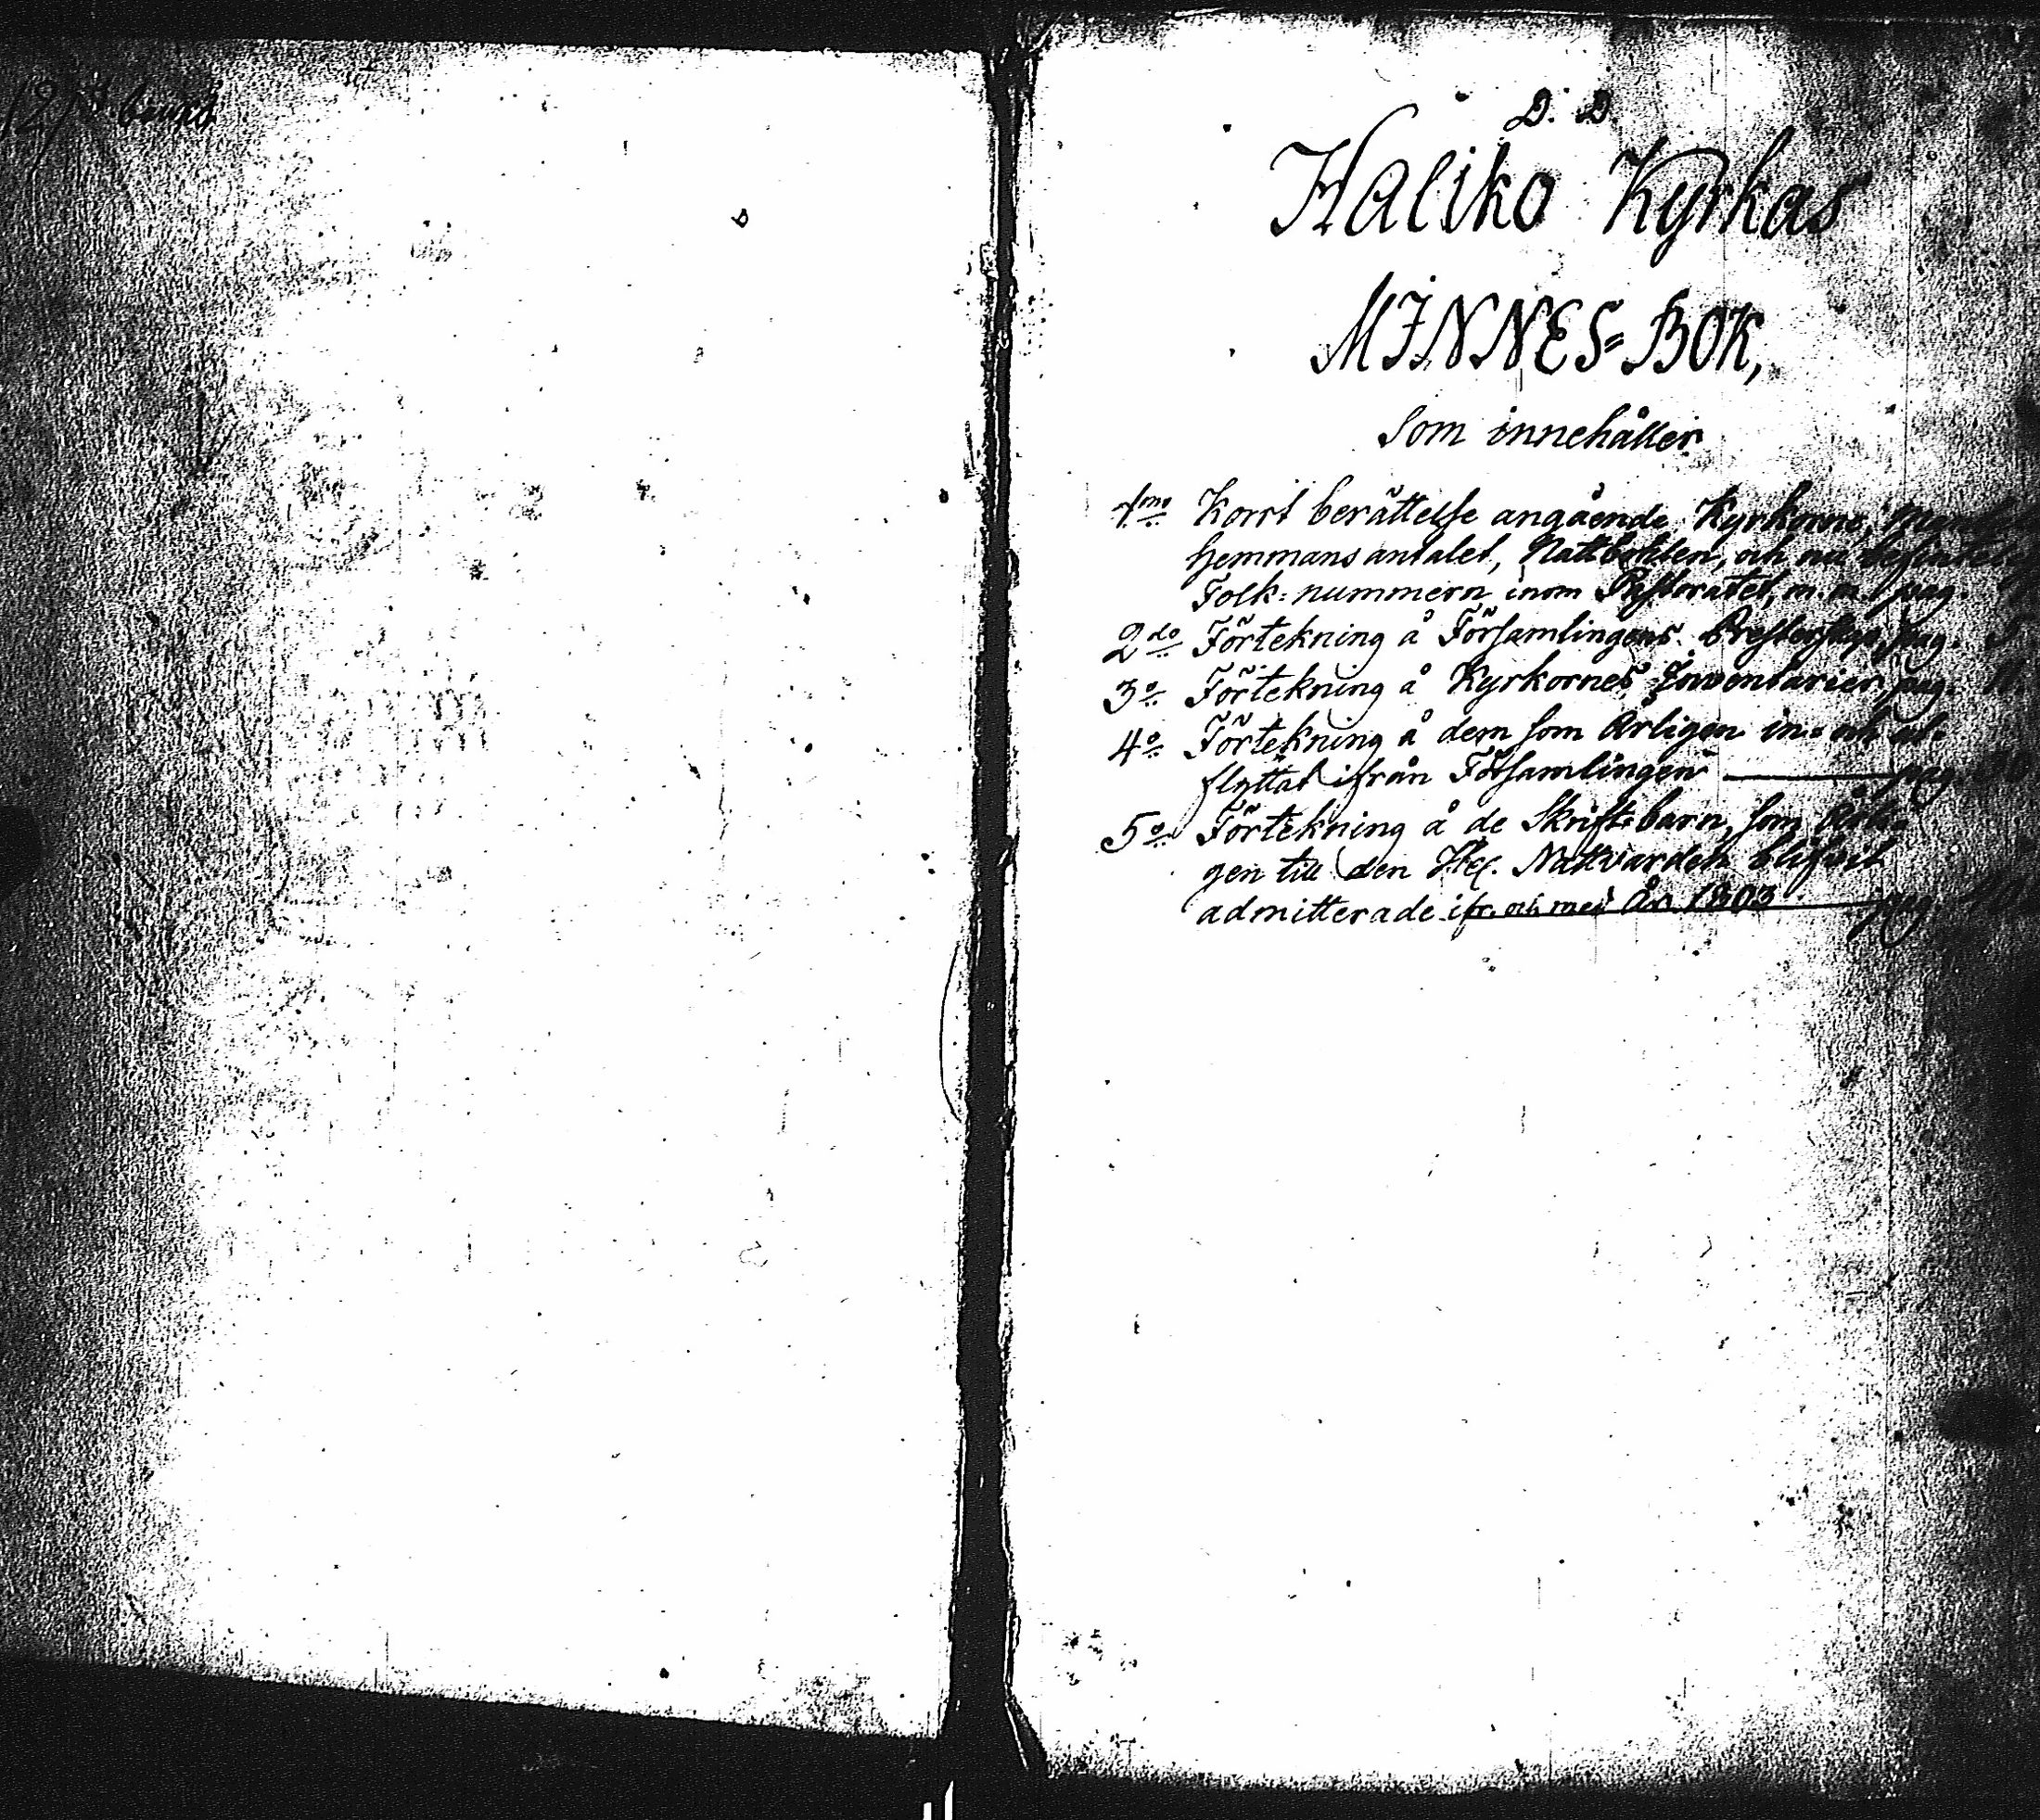 D. D.
Haliko Kyrkas
MINNES=BOK,
Som innehåller
1mo Kort berättelse angående Kyrkorne,
Hemmans antalet, och nu
Folk=nummern inom Pastoratet, m.m. pag.
2do Förtekning å Församlingens Presterskap, pag.
3o Förtekning å Kyrkornes Inventarier, pag.
4o Förtekning å dem som årligen in= och ut=
flyttat ifrån Församlingen pag
5o Förtekning å de Skriftebarn, som årli=
gen till den Hel. Nattvarden blifvit
admitterade ifr. och med År 1803 pag